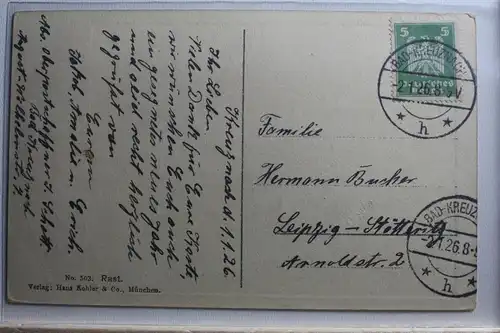 Kreuznach d. 1.1.26.
Ihr Lieben
Vielen Dank für Eure Karte,
wir wünschen Euch auch
ein gesegnetes neues Jahr
und seid recht herzlich
gegrüsst von
Euren
Jakob, Amalie u. Erich.
Abs. Oberpostschaffner J. Schott
Bad Kreuznach
August
No. 503. Rast.
Verlag: Hans Kohler & Co., München.
Familie
Hermann Bucher
Leipzig-Stötteritz
Arnoldstr. 2
5 5
Deutsches
BAD-KREUZNACH
2.1.26.8-9V
* h *
BAD-KREUZ
2.1.26.8-9
* h *